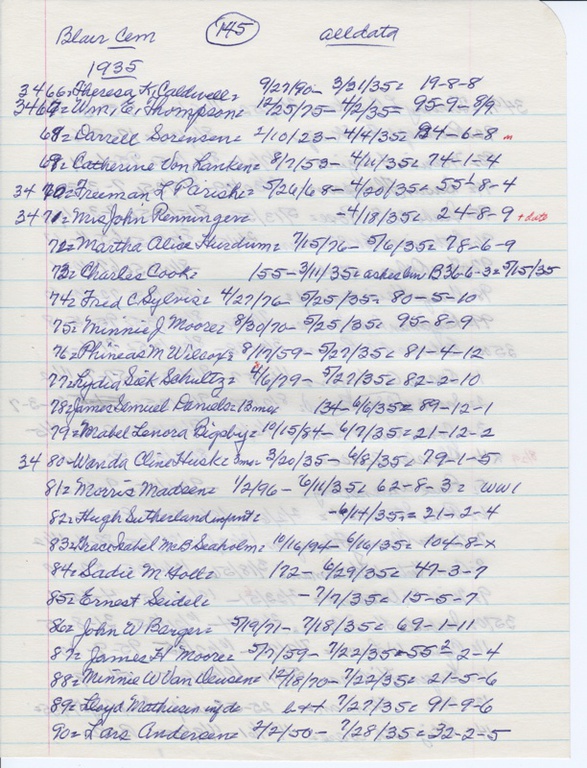 Blair Cem 145 all data
1935
3466= Theresa K. Caldwell= 9/27/90- 3/31/35= 19-8-8
3467= Wm. E. Thompson= 12/25/75- 4/2/35= 95-9-8/9
68= Darrell Sorensen= 2/10/23- 4/4/35= 24-6-8
69= Catherine Von Lanken= 8/7/53- 4/11/35= 74-1-4
3470= Freeman L Parish= 5/26/68- 4/20/35= 55½ 8-4
3471= Mrs John Renninger= -4/18/35= 24-8-9 + date
72= Martha Alice Hurdum= 7/15/76- 5/6/35= 78-6-9
73= Charles Cook= 155- 3/11/35= ashes in B36-6-3= 5/15/35
74= Fred C Sylvis= 4/27/76- 5/25/35= 80-5-10
75= Minnie J. Moore= 8/30/70- 5/25/35= 95-8-9
76= Phineas M Wilcox= 8/17/59- 5/27/35= 81-4-12
77= Lydia Sick Schultz= 4/6/79- 5/27/35= 82-2-10
78= James Samuel Daniels= 13mos 134- 6/6/35= 89-12-1
79= Mabel Lenora Bigsby= 10/15/84- 6/7/35= 21-12-2
3480- Wanda Cline Huske 3mo= 3/20/35- 6/8/35= 79-1-5
81= Morris Madsen= 1/2/96- 6/11/35= 62-8-3= WW1
82= Hugh Sutherland infant= -6/14/35= 21-2-4
83= Grace Isabel McB Seaholm= 10/16/94- 6/16/35= 104-8-x
84= Sadie M Holl= 172- 6/29/35= 47-3-7
85= Ernest Seidel= -7/7/35= 15-5-7
86= John W Barger= 5/19/71- 7/18/35= 69-1-11
87= James H Moore= 5/7/59- 7/22/35= 55½ 2-4
88= Minnie W Van Deusen= 12/18/70- 7/22/35= 21-5-6
89= Lloyd Mathiesen 7/27/35= 91-9-6
90= Lars Andersen= 2/2/50- 7/28/35= 32-2-5